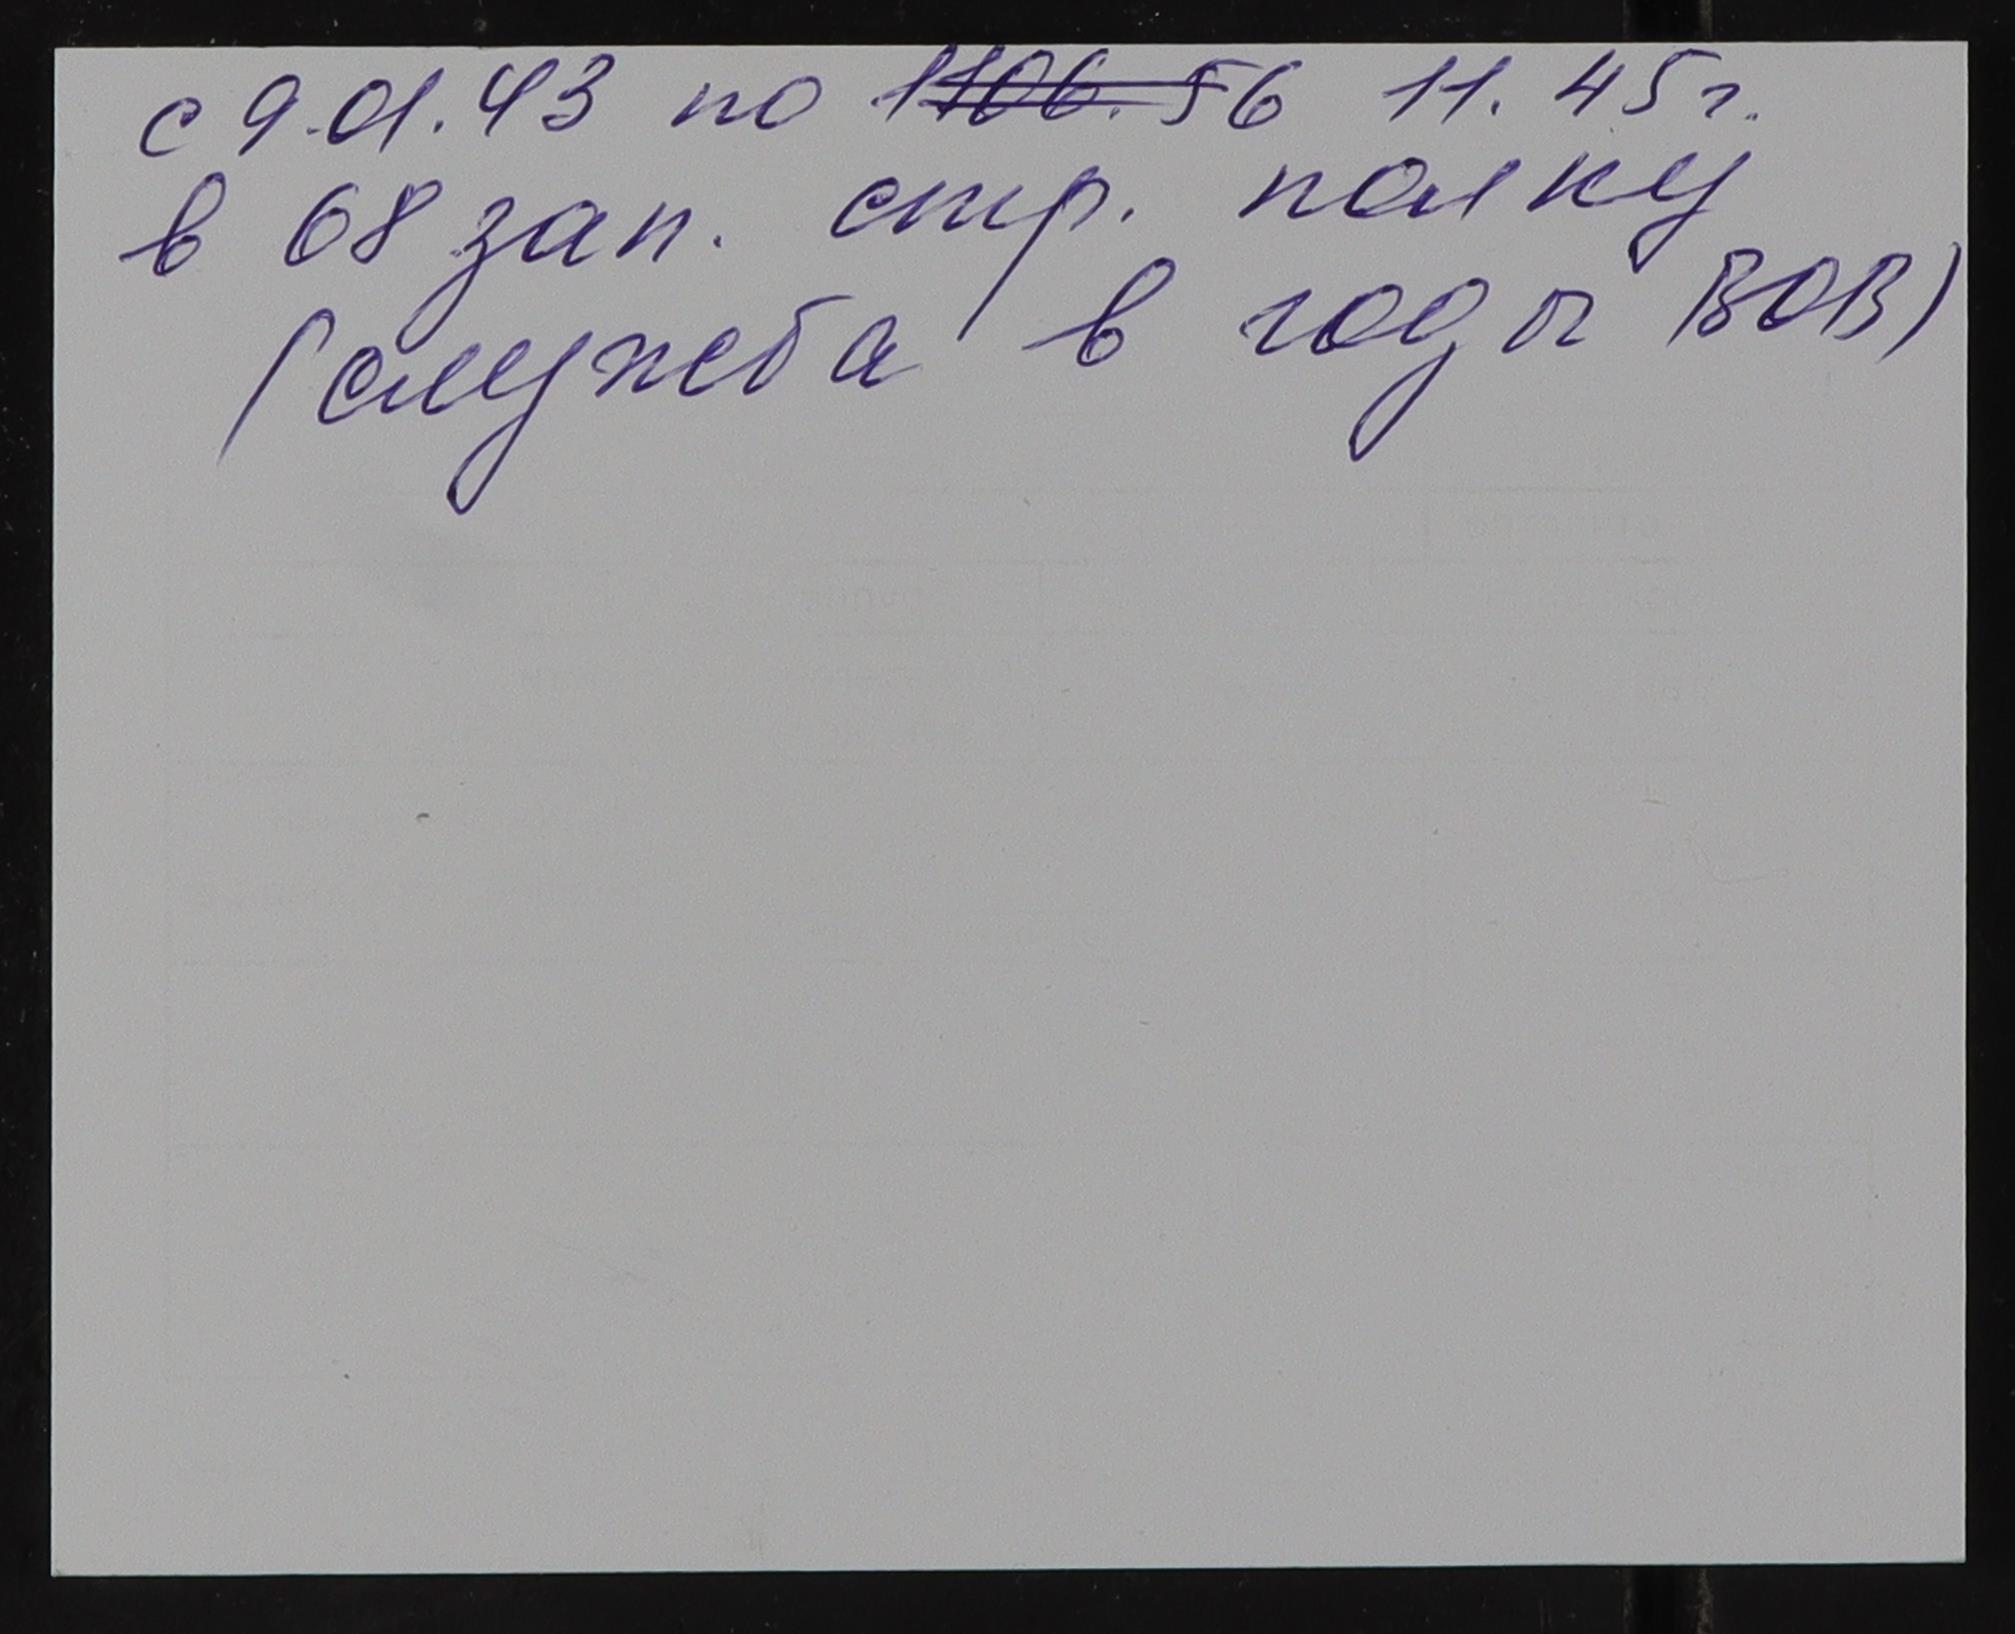 с 9.01.43 по 1106.56 11.45г.
в 68 зап. стр. полку
(служба в годы ВОВ)